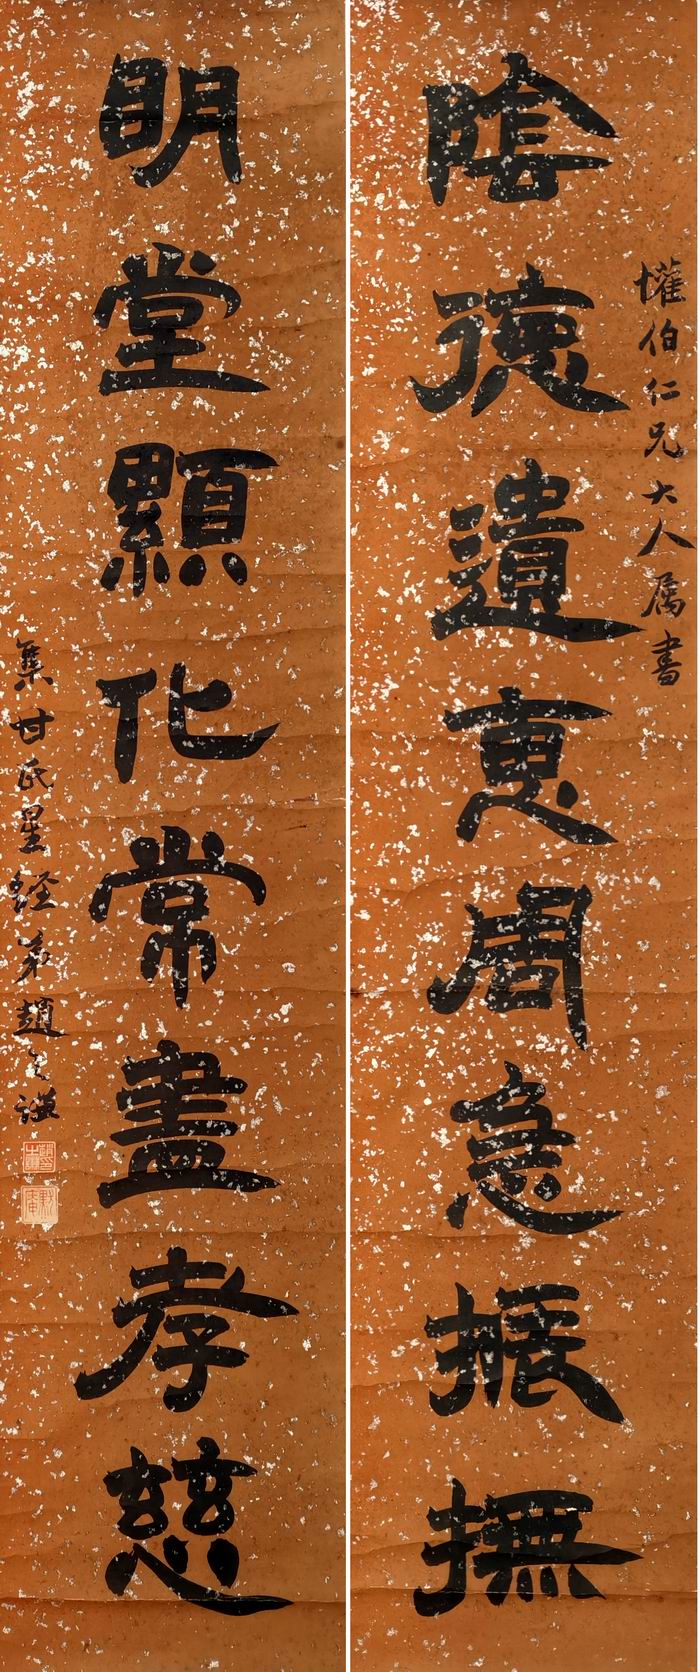 懽伯仁兄大人属書
陰德遺惠周急振撫
明堂顯化常盡孝慈
集甘氏星經弟趙之謙